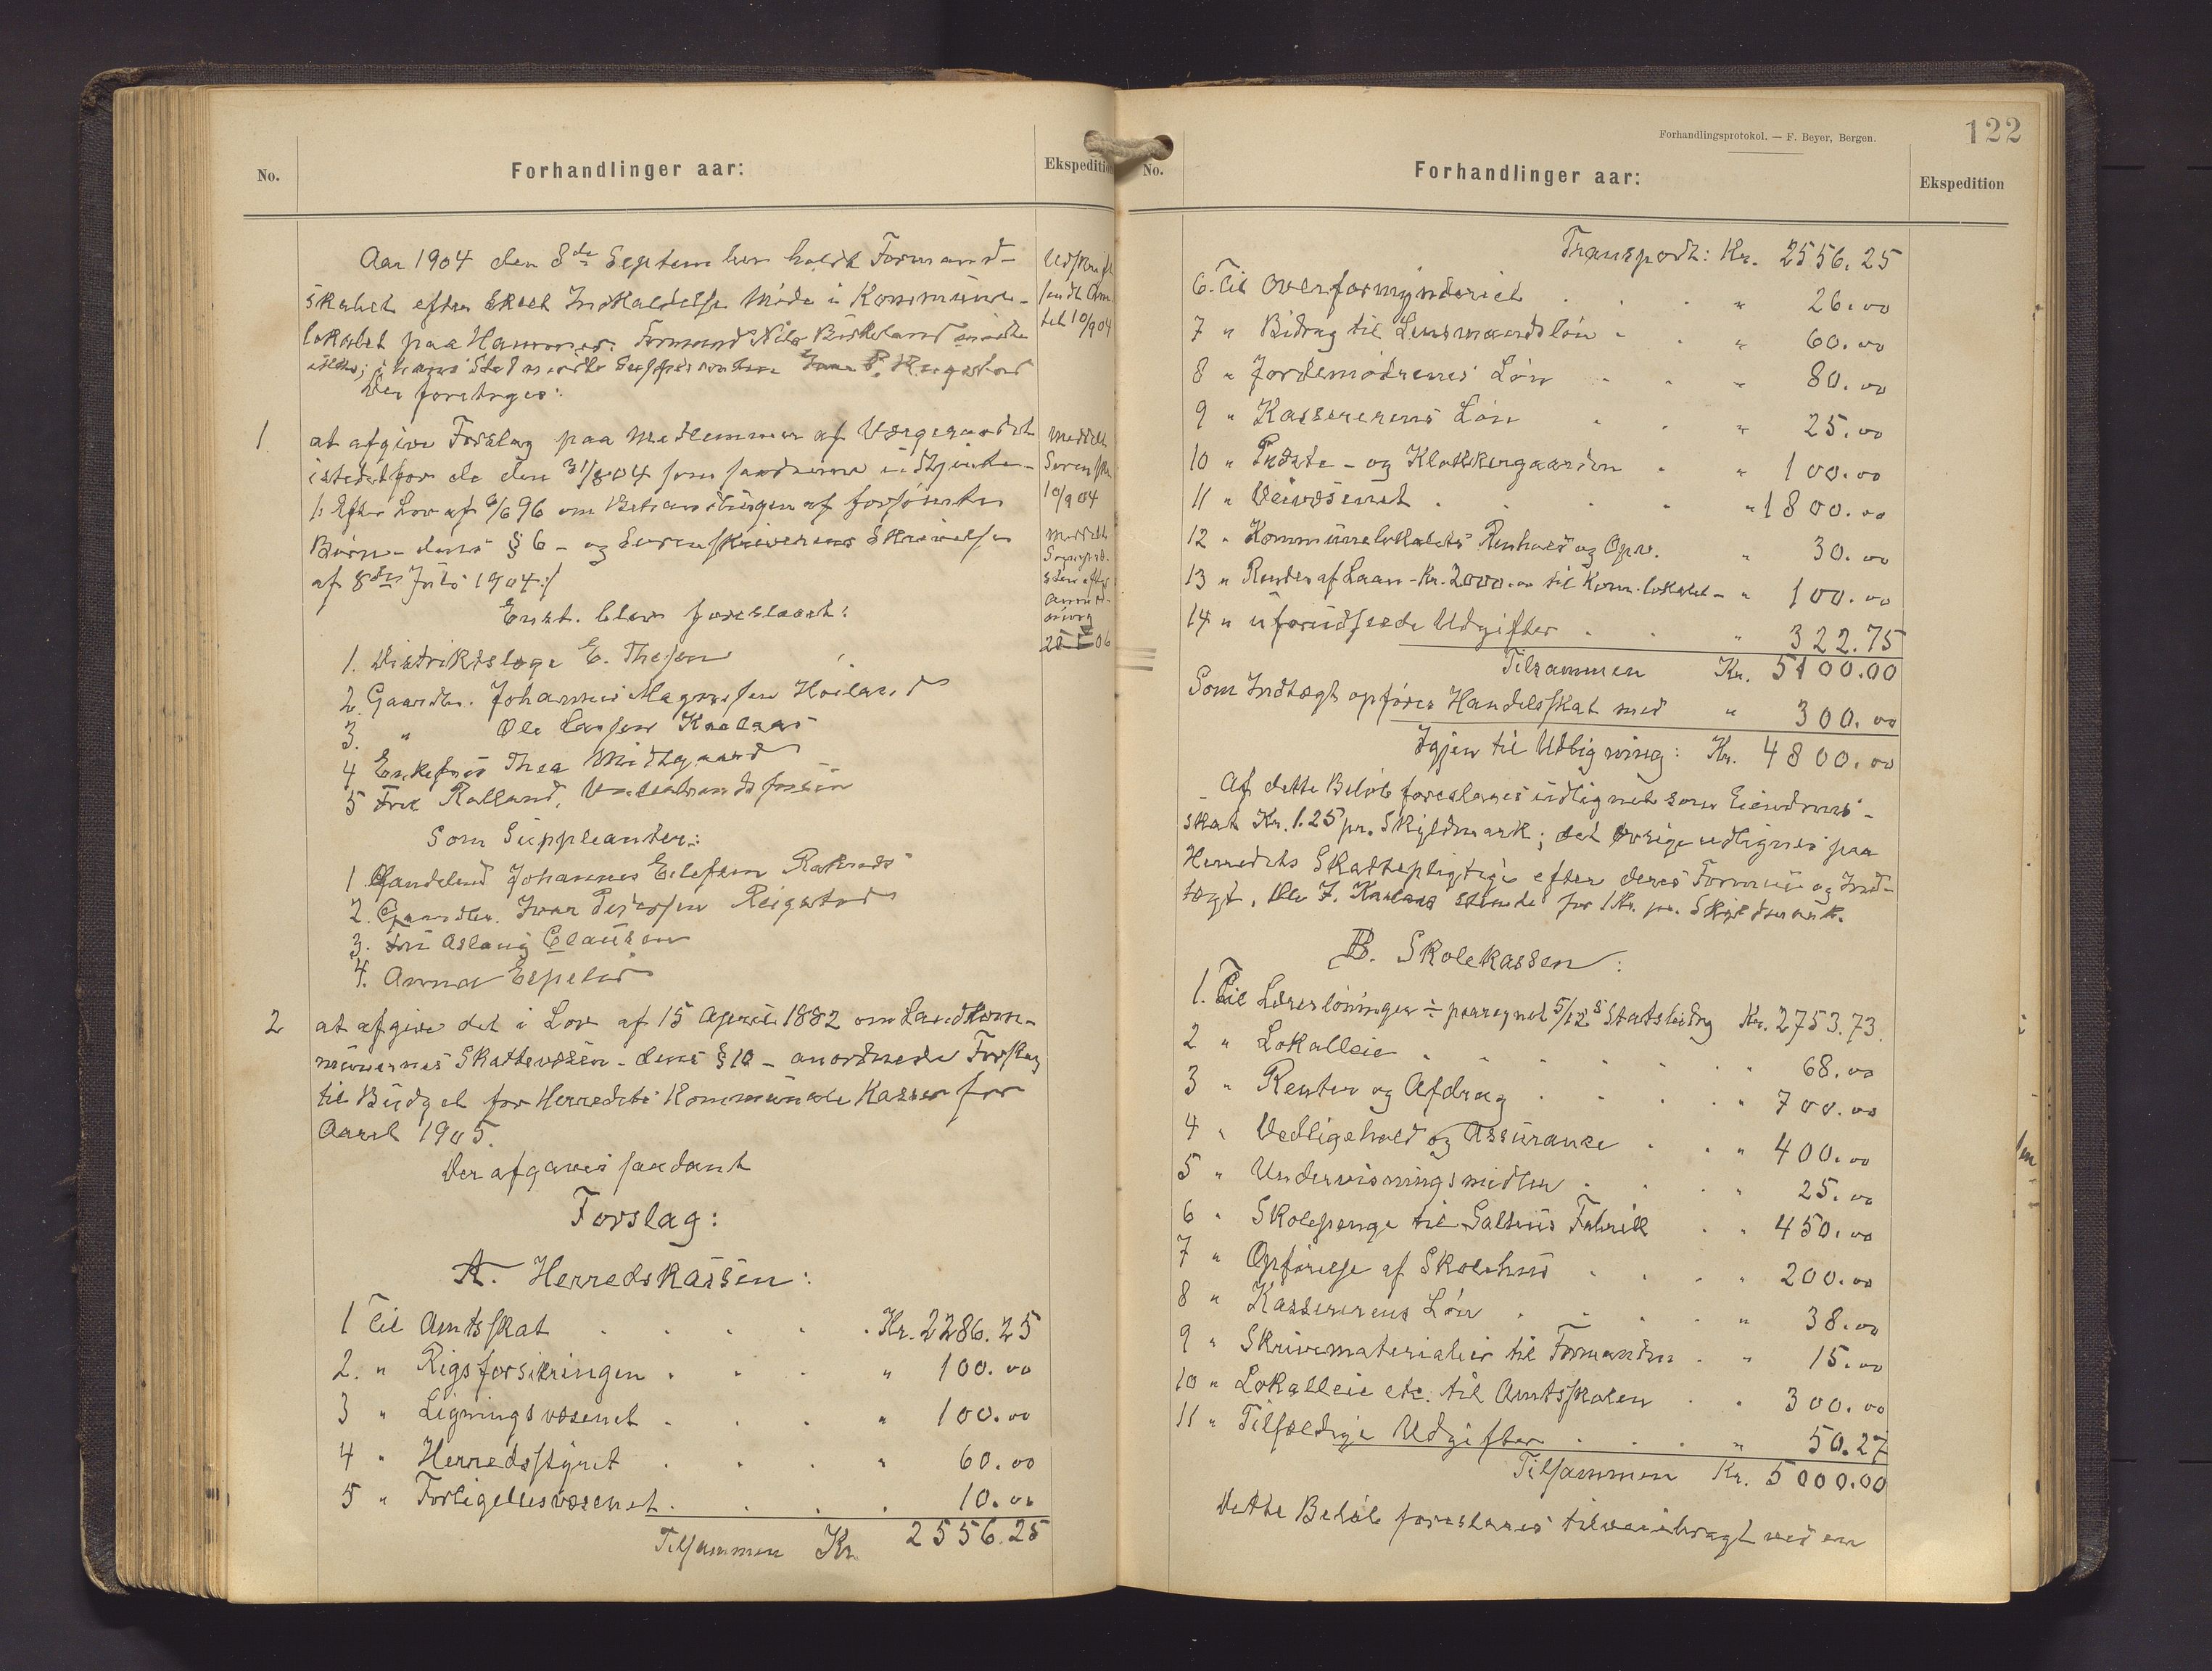 No.
Forhandlinger aar:
Ekspedition
Aar 1904 den 8de September holdt Formand-
skabet efter skeet Indkaldelse Møde i Kommune-
lokalet paa Hammer. Formand Nils Birkeland mødte
ikke; i hans Sted mødte Suppleanten Ivar P. Reigstad
Der foretoges:
1 at afgive Forslag paa Medlemmer af Vergeraadet
istedetfor de den 31/8 04 som
/: Efter Lov af 6/6 96 om Behandlingen af forsømte
Børn - dens § 6 - og Sorenskriverens Skrivelse
af 8de Juli 1904:/
Enst. blev foreslaaet:
1. Distriktslæge E. Thesen
2. Gaardbr. Johannes Magnesen Høiland
3. " Ole Larsen Kaalaas
4 Enkefru Thea Midtgaard
5 Frk Ralland,
Som Suppleanter:
1 Handelsmd Johannes Ellefsen
2. Gaardbr. Ivar Pedersen Reigstad
3. Fru Aslaug Clausen
4. Anna Espelid
2 at afgive det i Lov af 15 April 1882 om Landkom-
munernes Skattevæsen - dens § 10 - anordnede Forslag
til Budget for Herredets Kommunale Kasser for
Aaret 1905.
Der afgaves saadant
Forslag:
A. Herredskassen:
1 Til Amtsskat . . . . . Kr. 2286.25
2. " Rigsforsikringen . . . " 100.00
3 " Ligningsvæsenet . . . " 100.00
4 " Herredsstyret . . . " 60.00
5 " Forligelsesvæsenet . . . . 10.00
Tilsammen Kr. 2556.25
Udskrift
sendt Am
tet 10/9 04
Meddelt
Sorenskr
10/9 04
Meddelt
Sogneprd.
Forhandlingsprotokol. — F. Beyer, Bergen.
122
No.
Forhandlinger aar:
Ekspedition
Transport: Kr. 2556.25
6. Til Overformynderiet . . . " 26.00
7 " Bidrag til Lensmandsløn . . " 60.00
8 " Jordemødrenes Løn . . " 80.00
9 " Kassererens Løn . . " 25.00
10 " Præste- og Klokkergaarden . " 100.00
11 " Veivæsenet . . . . " 1800.00
12 " Kommunelokalets Renhold og Opv. " 30.00
13 " Renter af Laan - Kr. 2000.00 til Kom. lokalet - " 100.00
14 " uforudseede Udgifter . . " 322.75
Tilsammen Kr. 5100.00
Som Indtægt opføres Handelsskat med " 300.00
Igjen til Udligning: Kr. 4800.00
Af dette Beløb foreslaaes udlignet som Eiendoms-
skat Kr. 1.25 pr. Skyldmark; det øvrige udlignes paa
Herredets Skattepligtige efter deres Formue og Ind-
tægt. Ole J. Kaalaas stemte for 1 Kr. pr. Skyldmark.
B. Skolekassen:
1. Til Lærerlønninger ÷ paaregnet 5/12s Statsbidrag Kr. 2753.73.
2 " Lokalleie . . . . . . " 68.00
3 " Renter og Afdrag . . . . " 700.00
4 " Vedligehold og Assurance . . " 400.00
5 " Undervisningsmidler . . . " 25.00
6 " Skolepenge til Salhus Fabrik . . 450.00
7 " Opførelse af Skolehus . . . " 200.00
8 " Kassererens Løn . . . . " 38.00
9 " Skrivematerialier til Formanden . " 15.00
10 " Lokalleie etc. til Amtsskolen . . 300.00
11 " Tilfældige Udgifter . . . " 50.27
Tilsammen Kr. 5000.00
Dette Beløb foreslaaes tilveiebragt ved en